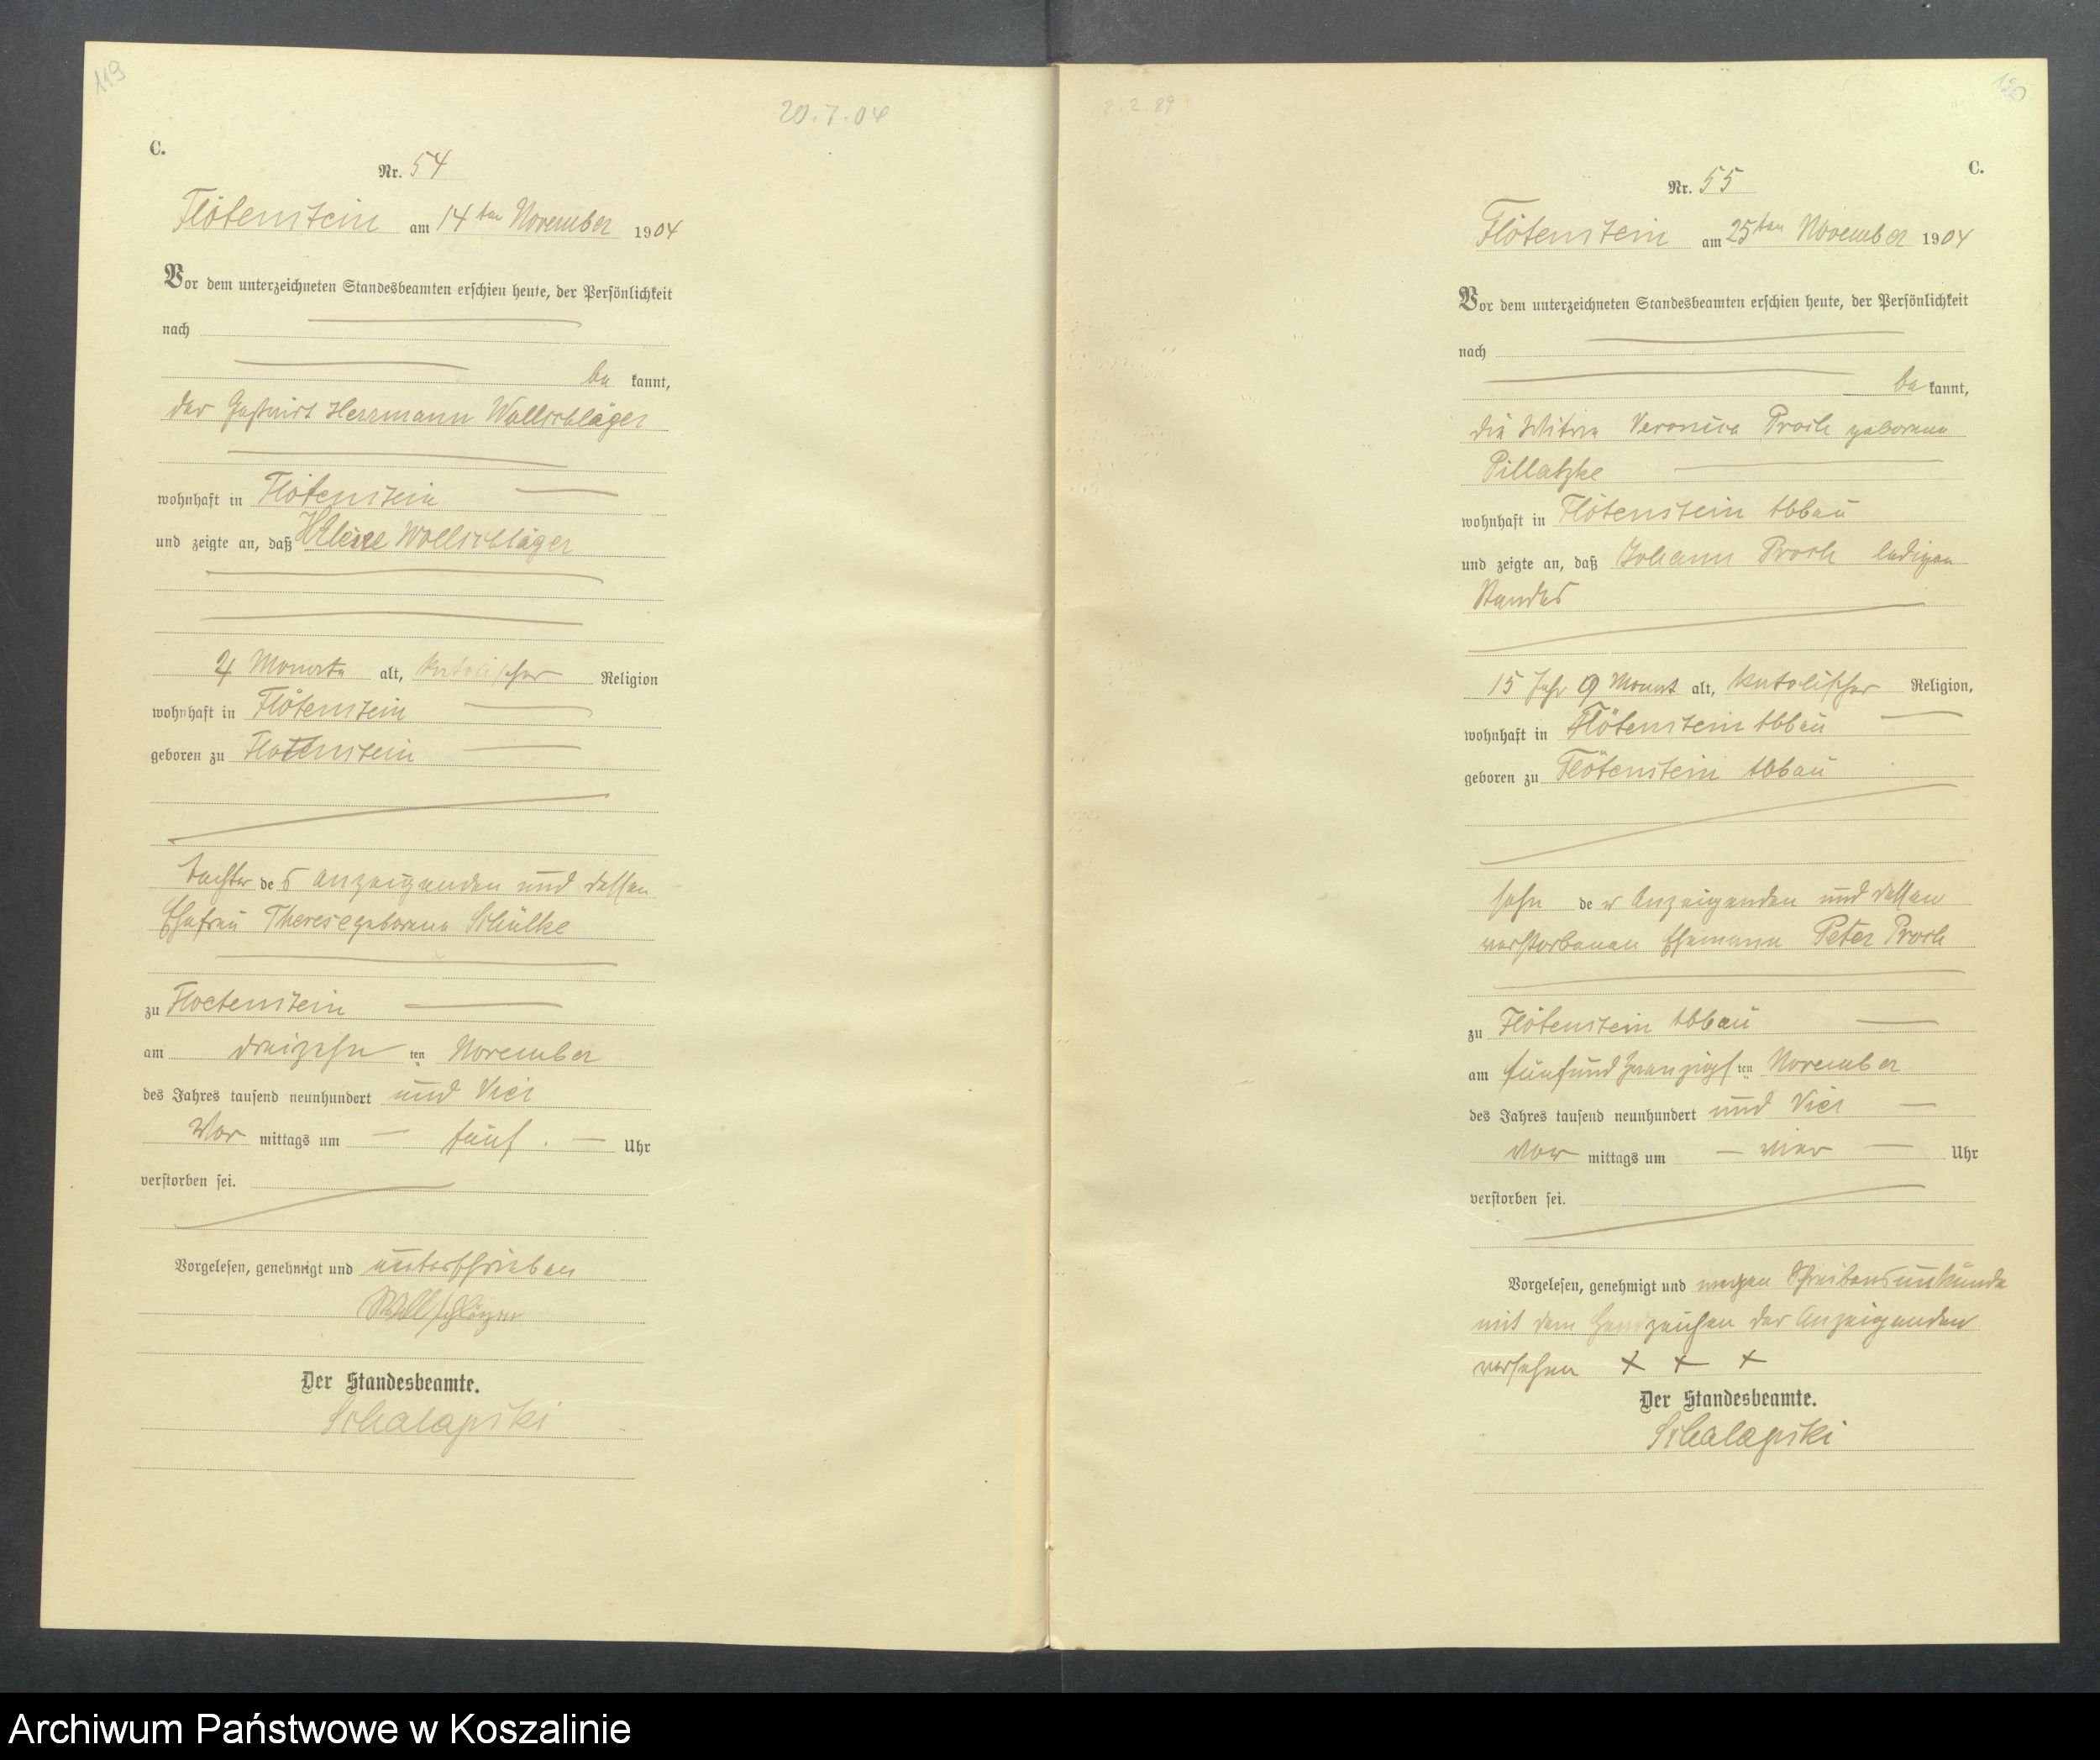 119
20.7.04
C.
Nr. 54
Flötenstein am 14ten November 1904
Vor dem unterzeichneten Standesbeamten erschien heute, der Persönlichkeit
nach
be kannt,
der Gastwirt Herrmann Wollschläger
wohnhaft in Flötenstein
und zeigte an, daß Helene Wollschläger
4 Monate alt, katolischer Religion
wohnhaft in Flötenstein
geboren zu Flötenstein
Tochter des Anzeigenden und dessen
Ehefrau Therese geborene Schülke
zu Floetenstein
am dreizehn ten November
des Jahres tausend neunhundert und Vier
Vor mittags um fünf Uhr
verstorben sei.
Vorgelesen, genehmigt und unterschrieben
Wollschläger
Der Standesbeamte.
Schalapski
2.2.89
C.
Nr. 55
Flötenstein am 25ten November 1904
Vor dem unterzeichneten Standesbeamten erschien heute, der Persönlichkeit
nach
be kannt,
die Witwe Veronica Proch geborene
Pillatzke
wohnhaft in Flötenstein Abbau
und zeigte an, daß Johann Proch ledigen
Standes
15 Jahr 9 Monat alt, katolischer Religion,
wohnhaft in Flötenstein Abbau
geboren zu Flötenstein Abbau
Sohn der Anzeigenden und dessen
verstorbenen Ehemann Peter Proch
zu Flötenstein Abbau
am fünfundzwanzigsten November
des Jahres tausend neunhundert und Vier
Vor mittags um vier Uhr
verstorben sei.
Vorgelesen, genehmigt und wegen Schreibensunkunde
mit dem Handzeichen der Anzeigenden
versehen + + +
Der Standesbeamte.
Schalapski
Archiwum Państwowe w Koszalinie